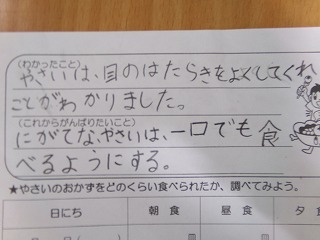 (わかったこと)
やさいは、目のはたらきをよくしてくれ
ことがわかりました。
(これからがんばりたいこと)
にがてな、やさいは、一口でも食
べるようにする。
★やさいのおかずをどのくらい食べられたか、調べてみよう。
日にち 朝食 昼食 夕食